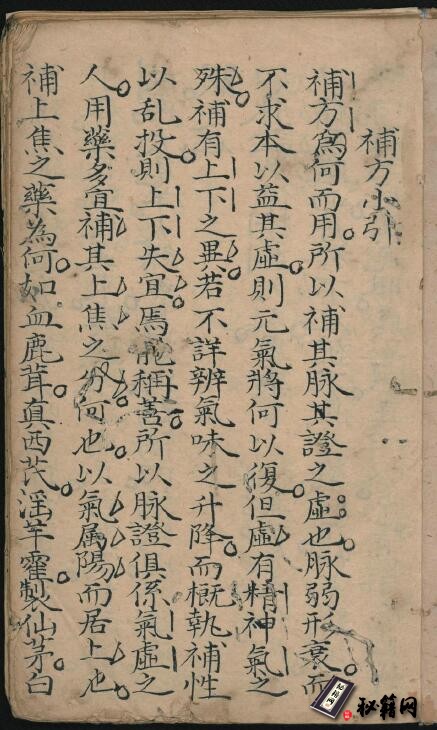 補方小引
補方爲何而用所以補其脉其證之虛也脉弱形衰而
不求本以益其虛則元氣將何以復但虛有精神氣之
殊補有上下之異若不詳辨氣味之升降而概執補性
以乱投則上下失宜焉能稱善所以脉證俱係氣虛之
人用藥多宜補其上焦之分何也以氣属陽而居上也
補上焦之藥為何如血鹿茸真西芪淫羊藿製仙茅白
秘籍网